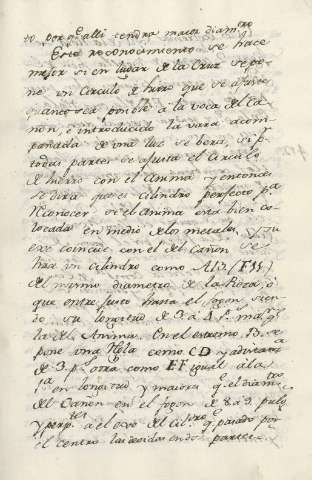 to, por q.e alli tendra maior diam.tro
Este reconocimiento se hace
mejor si en lugar de la Cruz se po-
ne un Circulo de hiero que se ajuste
quanto sea posible a la voca del Ca-
ñon, e introducido la vara acom-
pañada de una luz se bera, si p.r
todas partes se ajusta el Circulo
de hierro con el Anima y entonces
se dira que es cilindro perfecto p.a
Reconocer si el Anima esta bien co-
locada en medio de los metales, y su
exe coincide con el del Cañon se
hara un cilindro como AB (F
del mismo diametro de la Boca, o
que entre justo hasta el fogon sien-
do su longitud de 3 a 4 p.s mas q.e
la del Anima. En el extremo B. se
pone una Regla como CD y a distanc.a
de 3 p.s otra como EF igual a la
1.a en longitud y maiores q.e el diam.tro
del Cañon en el fogon de 8 a 9 pulg.s
y perp.res al exe del Cil.dro q.e pasado por
el centro las divida en dos partes